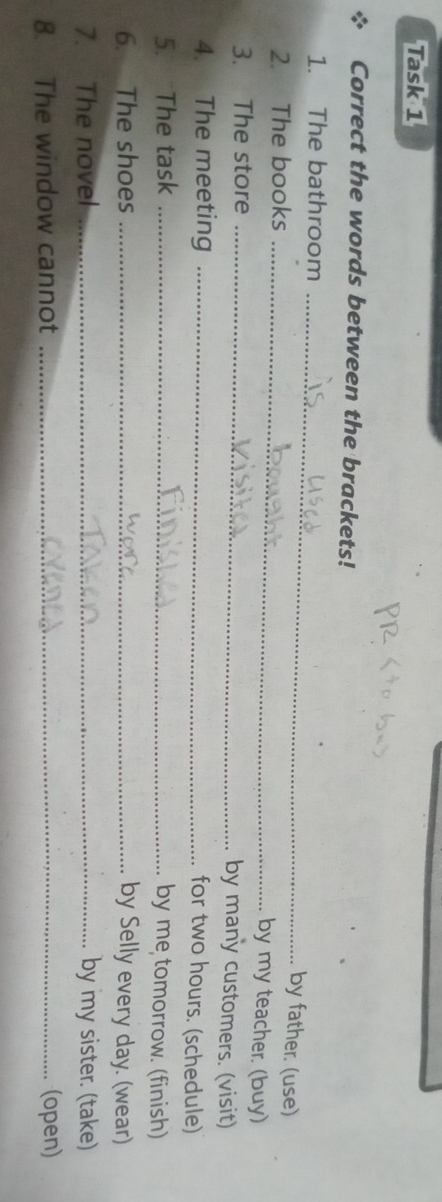 Task 1
PR (to be)
❖ Correct the words between the brackets!
1. The bathroom ........ is used ........ by father. (use)
2. The books ........ bought ........ by my teacher. (buy)
3. The store ........ visited ........ by many customers. (visit)
4. The meeting ........ for two hours. (schedule)
5. The task ........ Finished ........ by me tomorrow. (finish)
6. The shoes ........ wore ........ by Selly every day. (wear)
7. The novel ........ Taken ........ by my sister. (take)
8. The window cannot ........ (open)